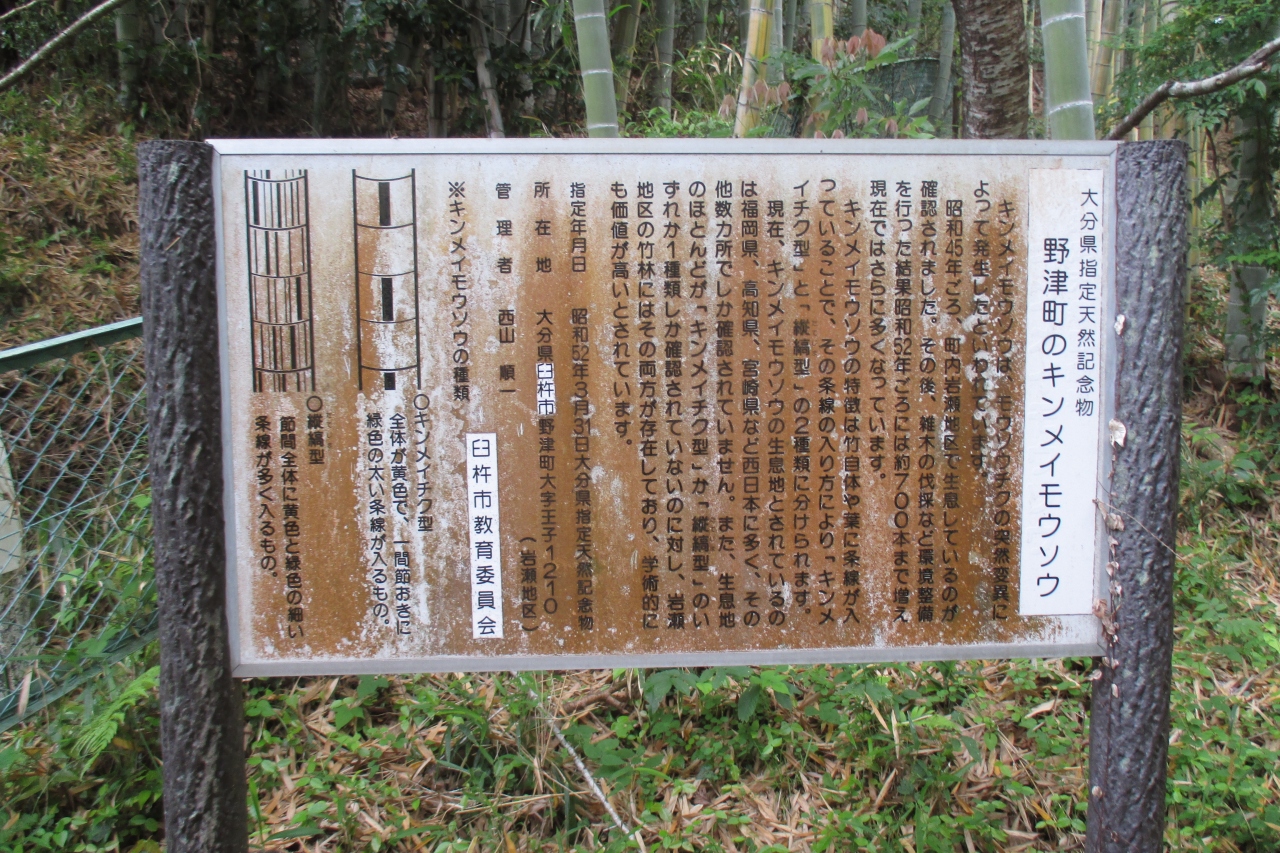 大分県指定天然記念物
野津町のキンメイモウソウ
キンメイモウソウは、モウソウチクの突然変異に
よって発生したといわれています。
昭和45年ごろ、町内岩瀬地区で生息しているのが
確認されました。その後、雑木の伐採など環境整備
を行った結果昭和52年ごろには約700本まで増え
現在ではさらに多くなっています。
キンメイモウソウの特徴は竹自体や葉に条線が入
っていることで、その条線の入り方により「キンメ
イチク型」と「縦縞型」の2種類に分けられます。
現在、キンメイモウソウの生息地とされているの
は福岡県、高知県、宮崎県など西日本に多く、その
他数カ所でしか確認されていません。また、生息地
のほとんどが「キンメイチク型」か「縦縞型」のい
ずれか1種類しか確認されていないのに対し、岩瀬
地区の竹林にはその両方が存在しており、学術的に
も価値が高いとされています。
指定年月日 昭和52年3月31日大分県指定天然記念物
所在地 大分県臼杵市野津町大字王子1210
(岩瀬地区)
管理者 西山 順一
臼杵市教育委員会
※キンメイモウソウの種類
○キンメイチク型
全体が黄色で、一間節おきに
緑色の太い条線が入るもの。
○縦縞型
節間全体に黄色と緑色の細い
条線が多く入るもの。